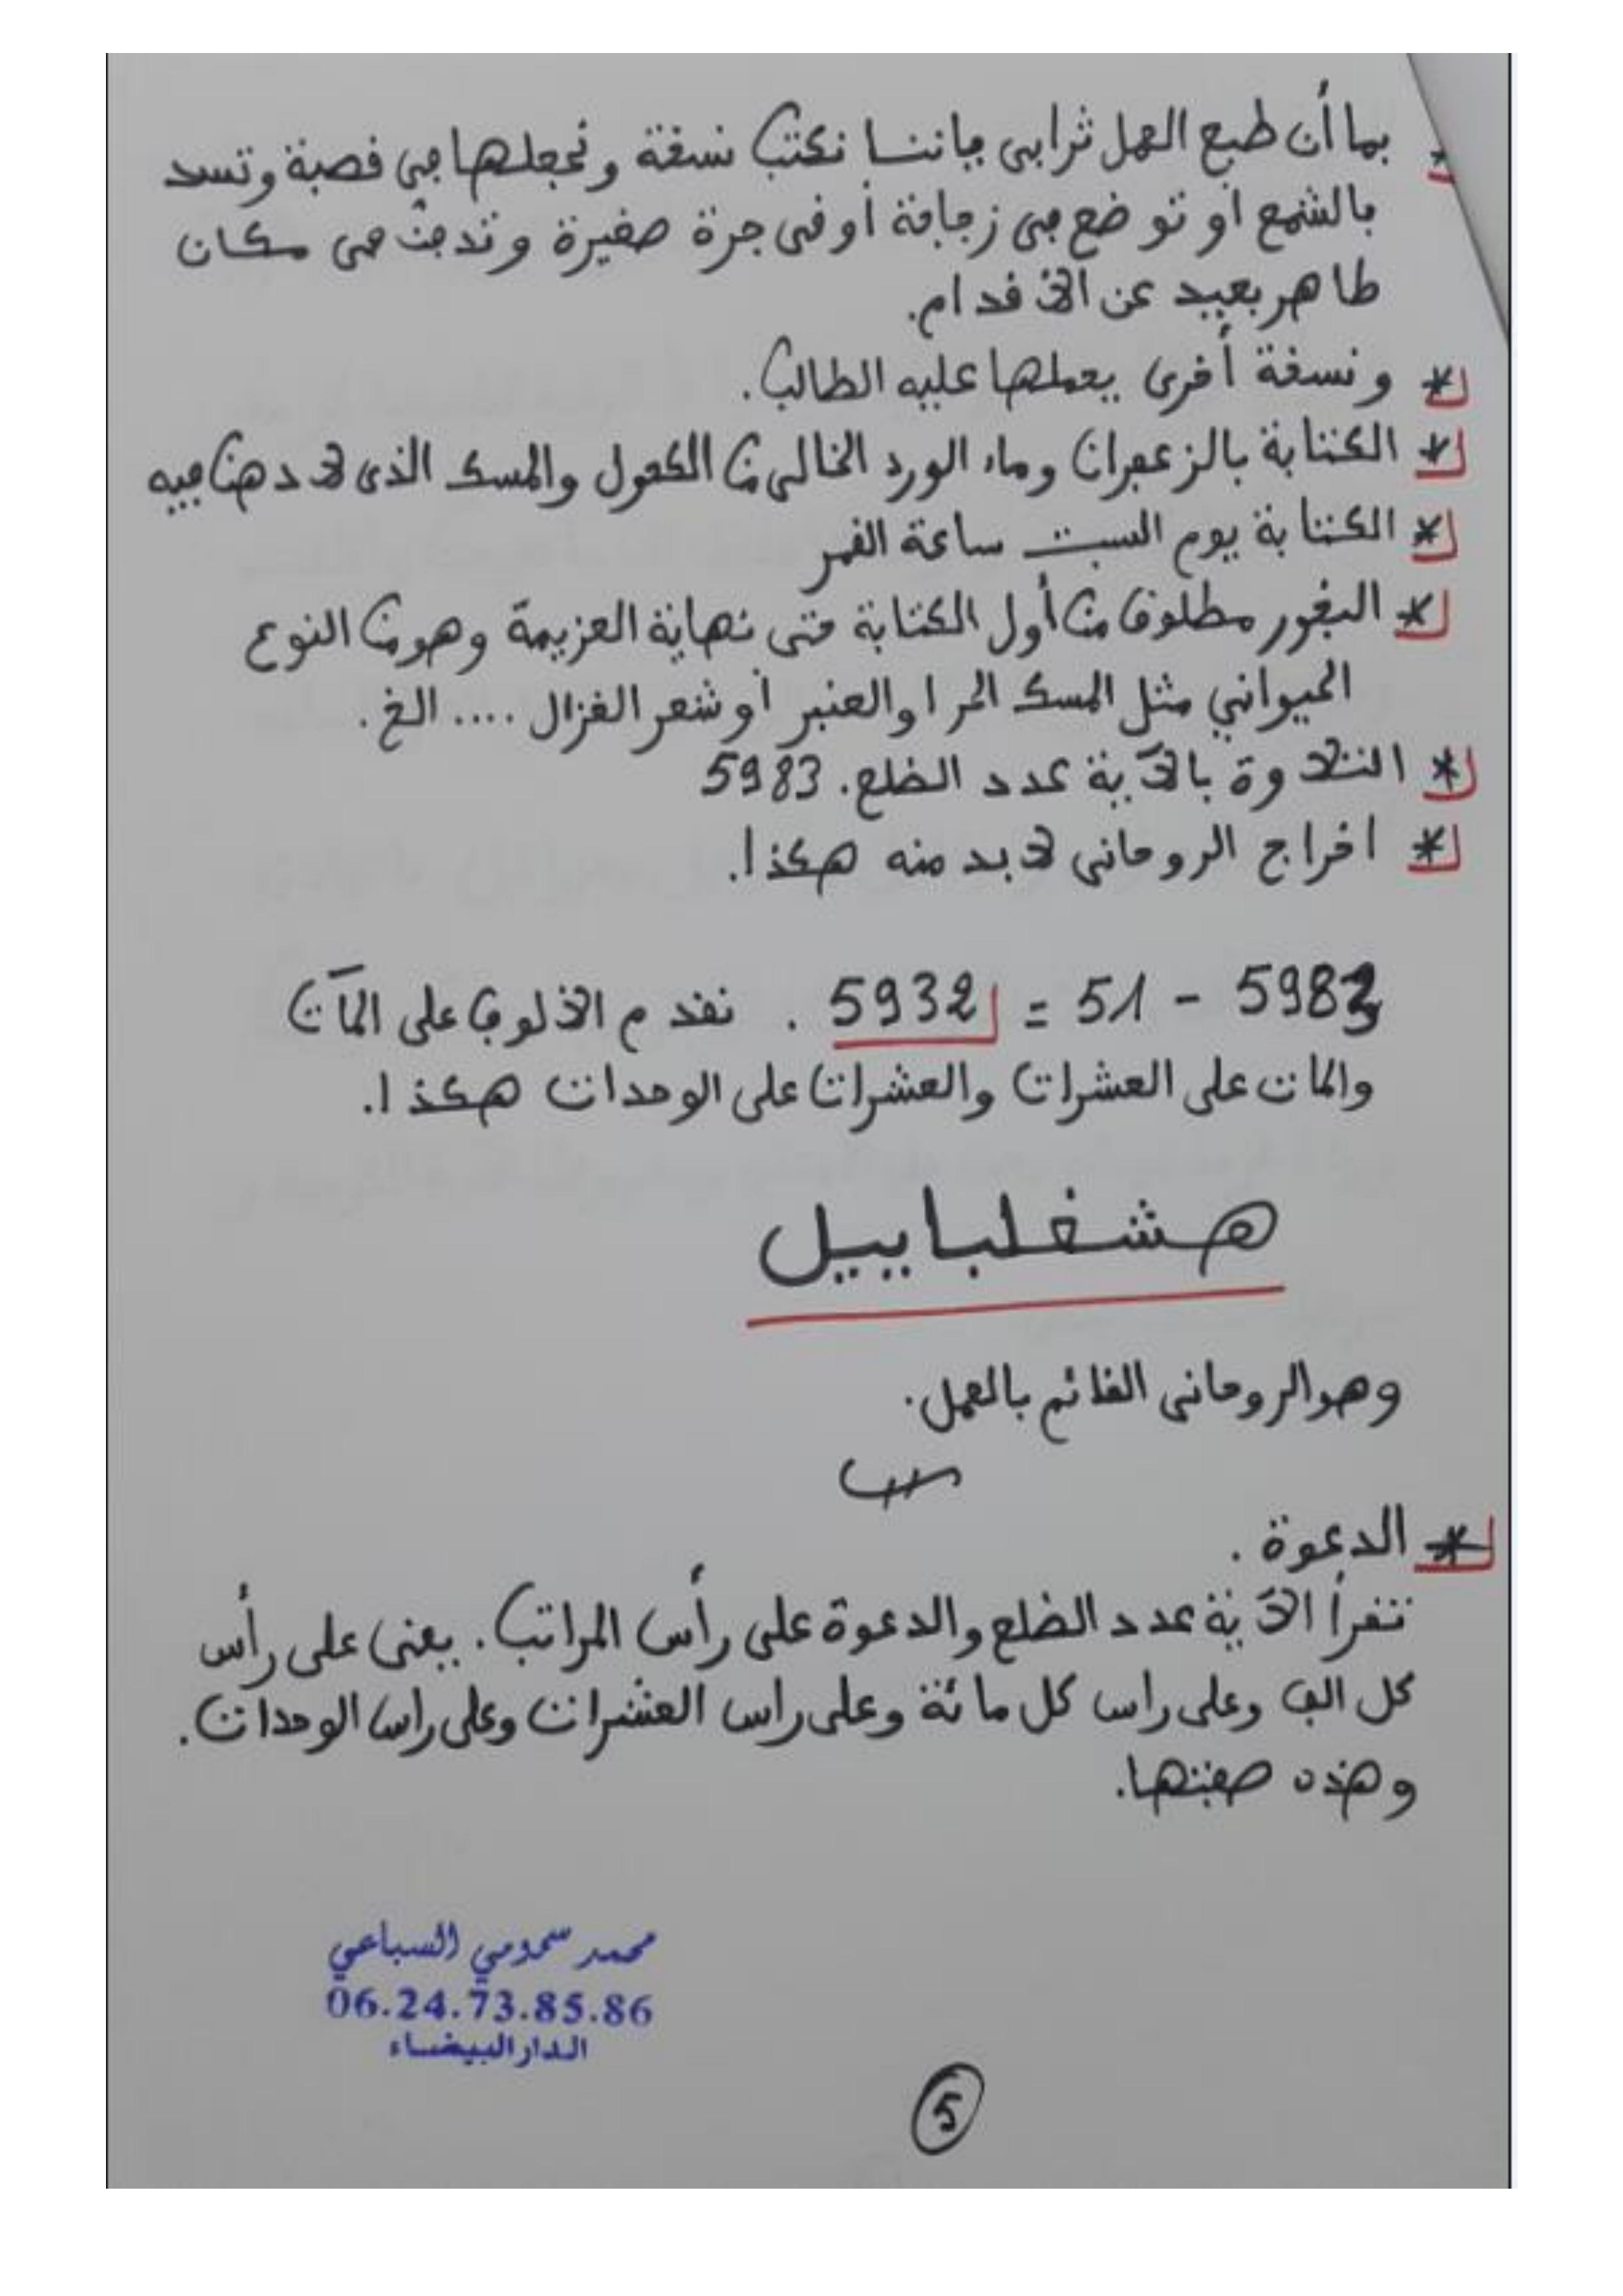 * بما أن طبع العمل ترابي فإننا نكتب نسخة ونجعلها في قصبة وتسد
بالشمع أو توضع في زجاجة أو في جرة صغيرة وتدفن في مكان
طاهر بعيد عن الأقدام.
* ونسخة أخرى يعملها عليه الطالب.
* الكتابة بالزعفران وماء الورد الخالي من الكحول والمسك الذي لا دهن فيه
* الكتابة يوم السبت ساعة القمر
* البخور مطلوق من أول الكتابة حتى نهاية العزيمة وهو من النوع
الحيواني مثل المسك الحر او العنبر أو شعر الغزال .... الخ.
* التلاوة بالآية عدد الضلع. 5983
* اخراج الروحاني لابد منه هكذا.
5983 - 51 = 5932 . نقدم الألوف على المآت
والمات على العشرات والعشرات على الوحدات هكذا.
هشغلبابيل
وهو الروحاني القائم بالعمل.
* الدعوة.
تقرأ الآية عدد الضلع والدعوة على رأس المراتب. يعني على رأس
كل الف وعلى راس كل مائة وعلى راس العشرات وعلى راس الوحدات.
وهذه صفتها.
محمد سحومي السباعي
06.24.73.85.86
الدار البيضاء
5